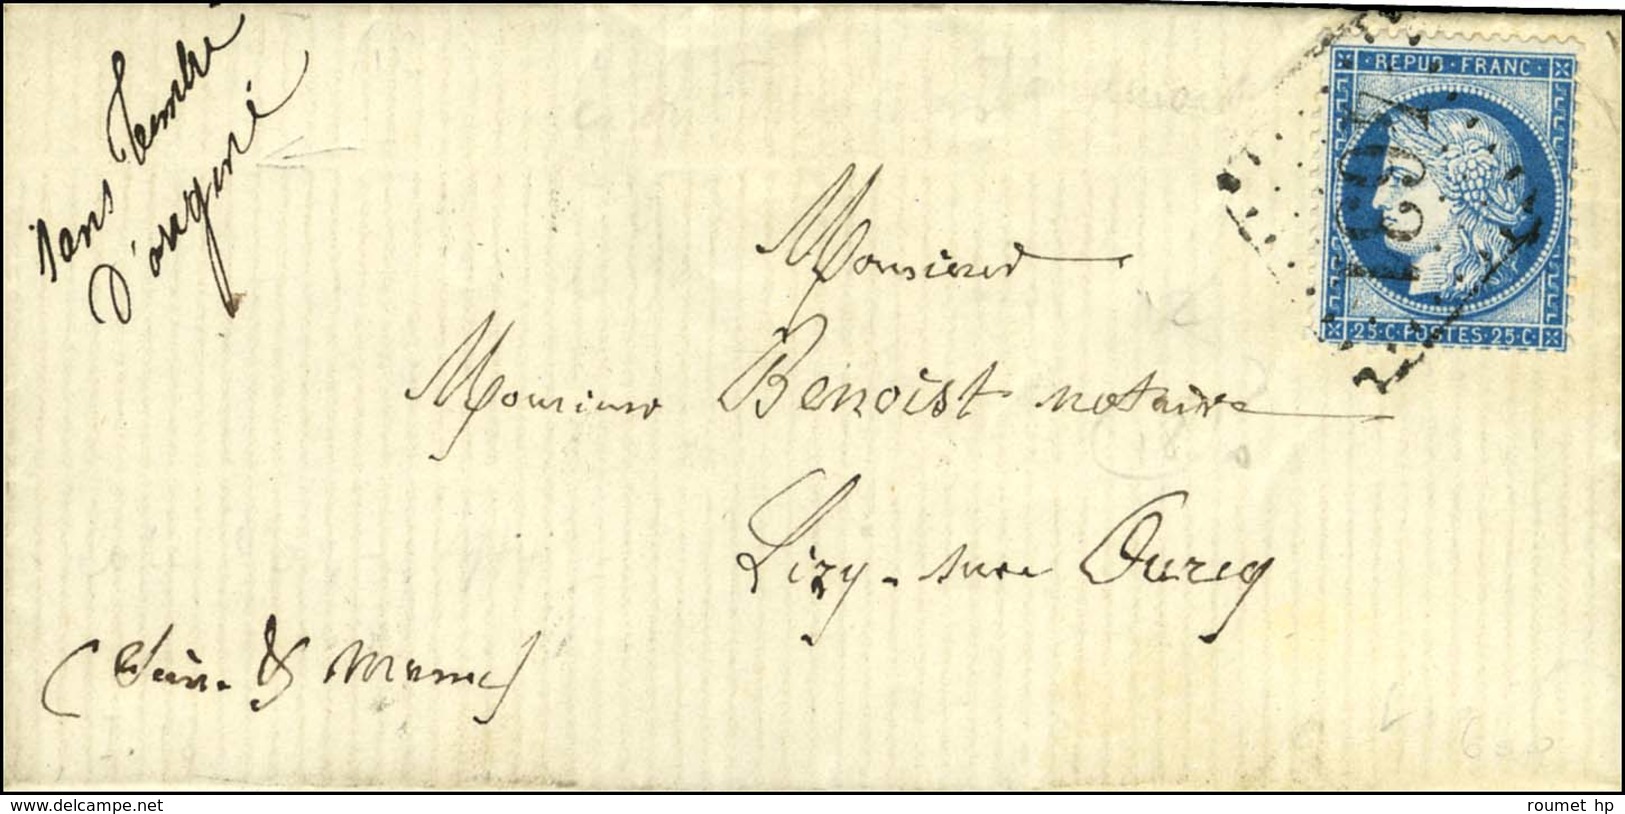 sans timbre
d'origine
REPUB · FRANC ·
25 · C · POSTES · 25 · C ·
Monsieur
Monsieur Benoist notaire
18
Lizy-sur Ourcq
(Seine & Marne)
delcampe.net
roumet hp